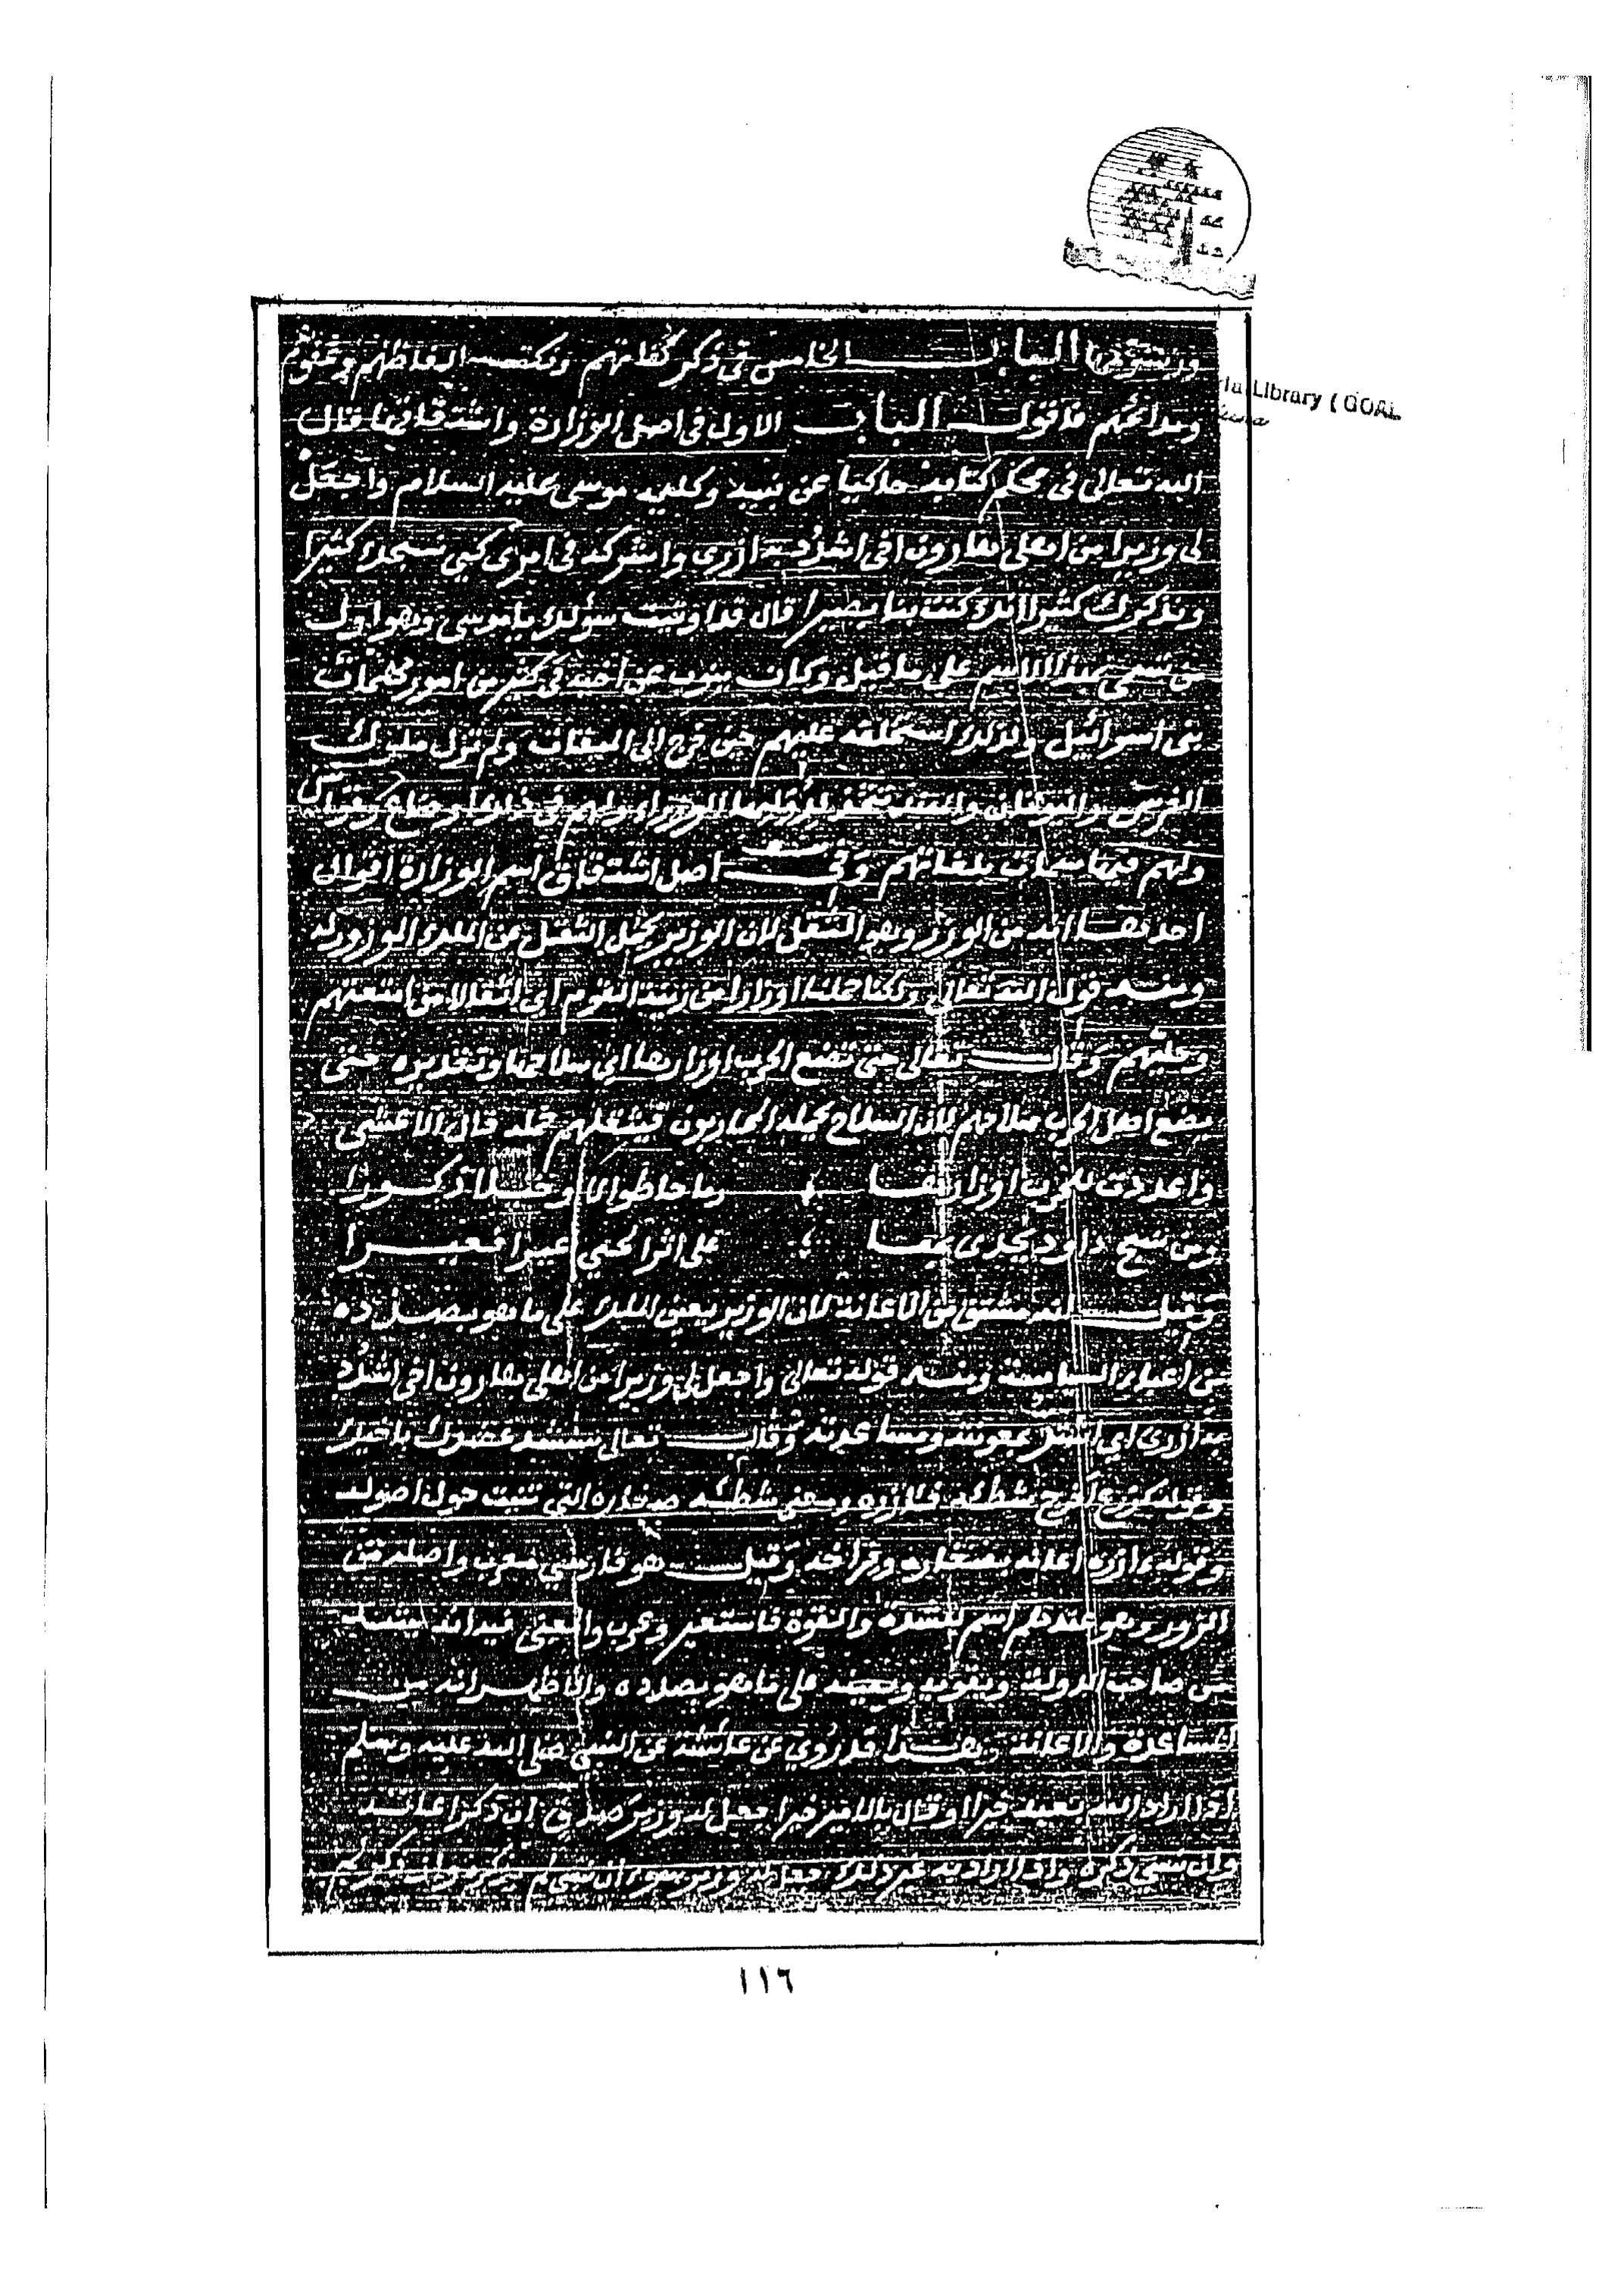 ria Library ( GOAL
الباب الخامس في ذكر كفاتهم ونكت الفاظهم
ومدائحهم فاقول الباب الاول في اصل الوزارة واشتقاقها قال
الله تعالى في محكم كتابه حاكيا عن نبيه وكليمه موسى عليه السلام واجعل
لي وزيرا من اهلي هارون اخي اشدد به ازري واشركه في امري كي نسبحك كثيرا
ونذكرك كثيرا انك كنت بنا بصيرا قال قد اوتيت سؤلك يا موسى وهو اول
من سمي بهذا الاسم على ما قيل وكان ينوب عن اخيه في كثير من امور مهمات
بني اسرائيل ولذلك استخلفه عليهم حين خرج الى الميقات ولم تزل ملوك
الفرس واليونان
ولهم فيها سمات بلغاتهم وفي اصل اشتقاق اسم الوزارة اقوال
احدها انه من الوزر وهو الثقل لان الوزير يحمل الثقل عن الملك
ومنه قول الله تعالى ولكنا حملنا اوزارا من زينة القوم اي اثقالا من امتعتهم
وحليهم وقال تعالى حتى تضع الحرب اوزارها اي سلاحها وتقديره حتى
يضع اهل الحرب سلاحهم لان السلاح يحمله المحاربون فيثقلهم حمله قال الاعشى
واعددت للحرب اوزارها رماحا طوالا وخيلا ذكورا
ومن نسج داود يحدى بها على اثر الحي عيرا فعيرا
وقيل انه مشتق من الاعانة لان الوزير يعين الملك على ما هو بصدده
من اعباء السياسة ومنه قوله تعالى واجعل لي وزيرا من اهلي هارون اخي اشدد
به ازري اي معونته ومساعدته وقال تعالى سنشد عضدك باخيك
وقوله كزرع اخرج شطئه فآزره ومعنى شطئه صغاره التي تنبت حول اصوله
وقوله فآزره اعانه بصغاره وفراخه وقيل هو فارسي معرب واصله من
الزور وهو عندهم اسم للشدة والقوة فاستعير وعرب والمعنى فيه انه يشد
من صاحب الدولة ويقويه ويعينه على ما هو بصدده والاظهر انه من
المساعدة والاعانة وبهذا قد روي عن عائشة عن النبي صلى الله عليه وسلم
اذا اراد الله بعبد خيرا او قال بالامير خيرا جعل له وزير صدق ان ذكر اعانه
وان نسي ذكره واذا اراد به غير ذلك جعل له وزير سوء ان نسي لم يذكره وان ذكر لم
١١٦